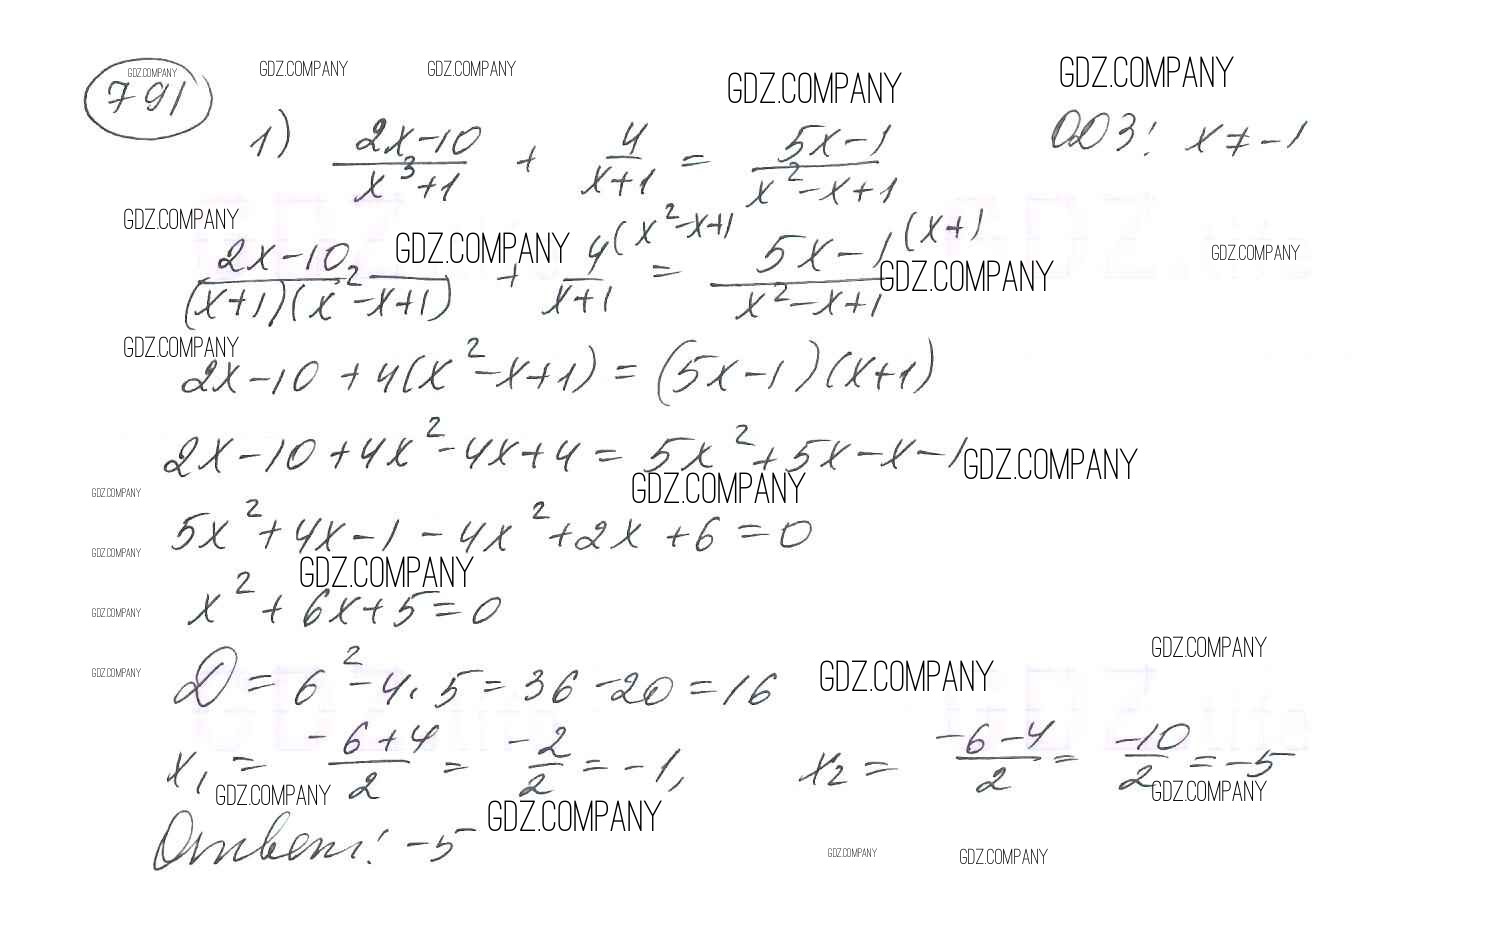 GDZ.COMPANY GDZ.COMPANY GDZ.COMPANY GDZ.COMPANY GDZ.COMPANY
791
1) (2x-10)/(x³+1) + 4/(x+1) = (5x-1)/(x²-x+1) ОДЗ: x≠-1
GDZ.COMPANY GDZ.COMPANY GDZ.COMPANY GDZ.COMPANY
(2x-10)/((x+1)(x²-x+1)) + 4(x²-x+1)/(x+1) = (5x-1)(x+1)/(x²-x+1)
GDZ.COMPANY
2x-10+4(x²-x+1)=(5x-1)(x+1)
2x-10+4x²-4x+4=5x²+5x-x-1 GDZ.COMPANY
GDZ.COMPANY GDZ.COMPANY
5x²+4x-1-4x²+2x+6=0
GDZ.COMPANY GDZ.COMPANY
x²+6x+5=0
GDZ.COMPANY
GDZ.COMPANY GDZ.COMPANY GDZ.COMPANY
D=6²-4·5=36-20=16
x₁=(-6+4)/2=-2/2=-1, x₂=(-6-4)/2=-10/2=-5
GDZ.COMPANY GDZ.COMPANY GDZ.COMPANY
Ответ: -5
GDZ.COMPANY GDZ.COMPANY